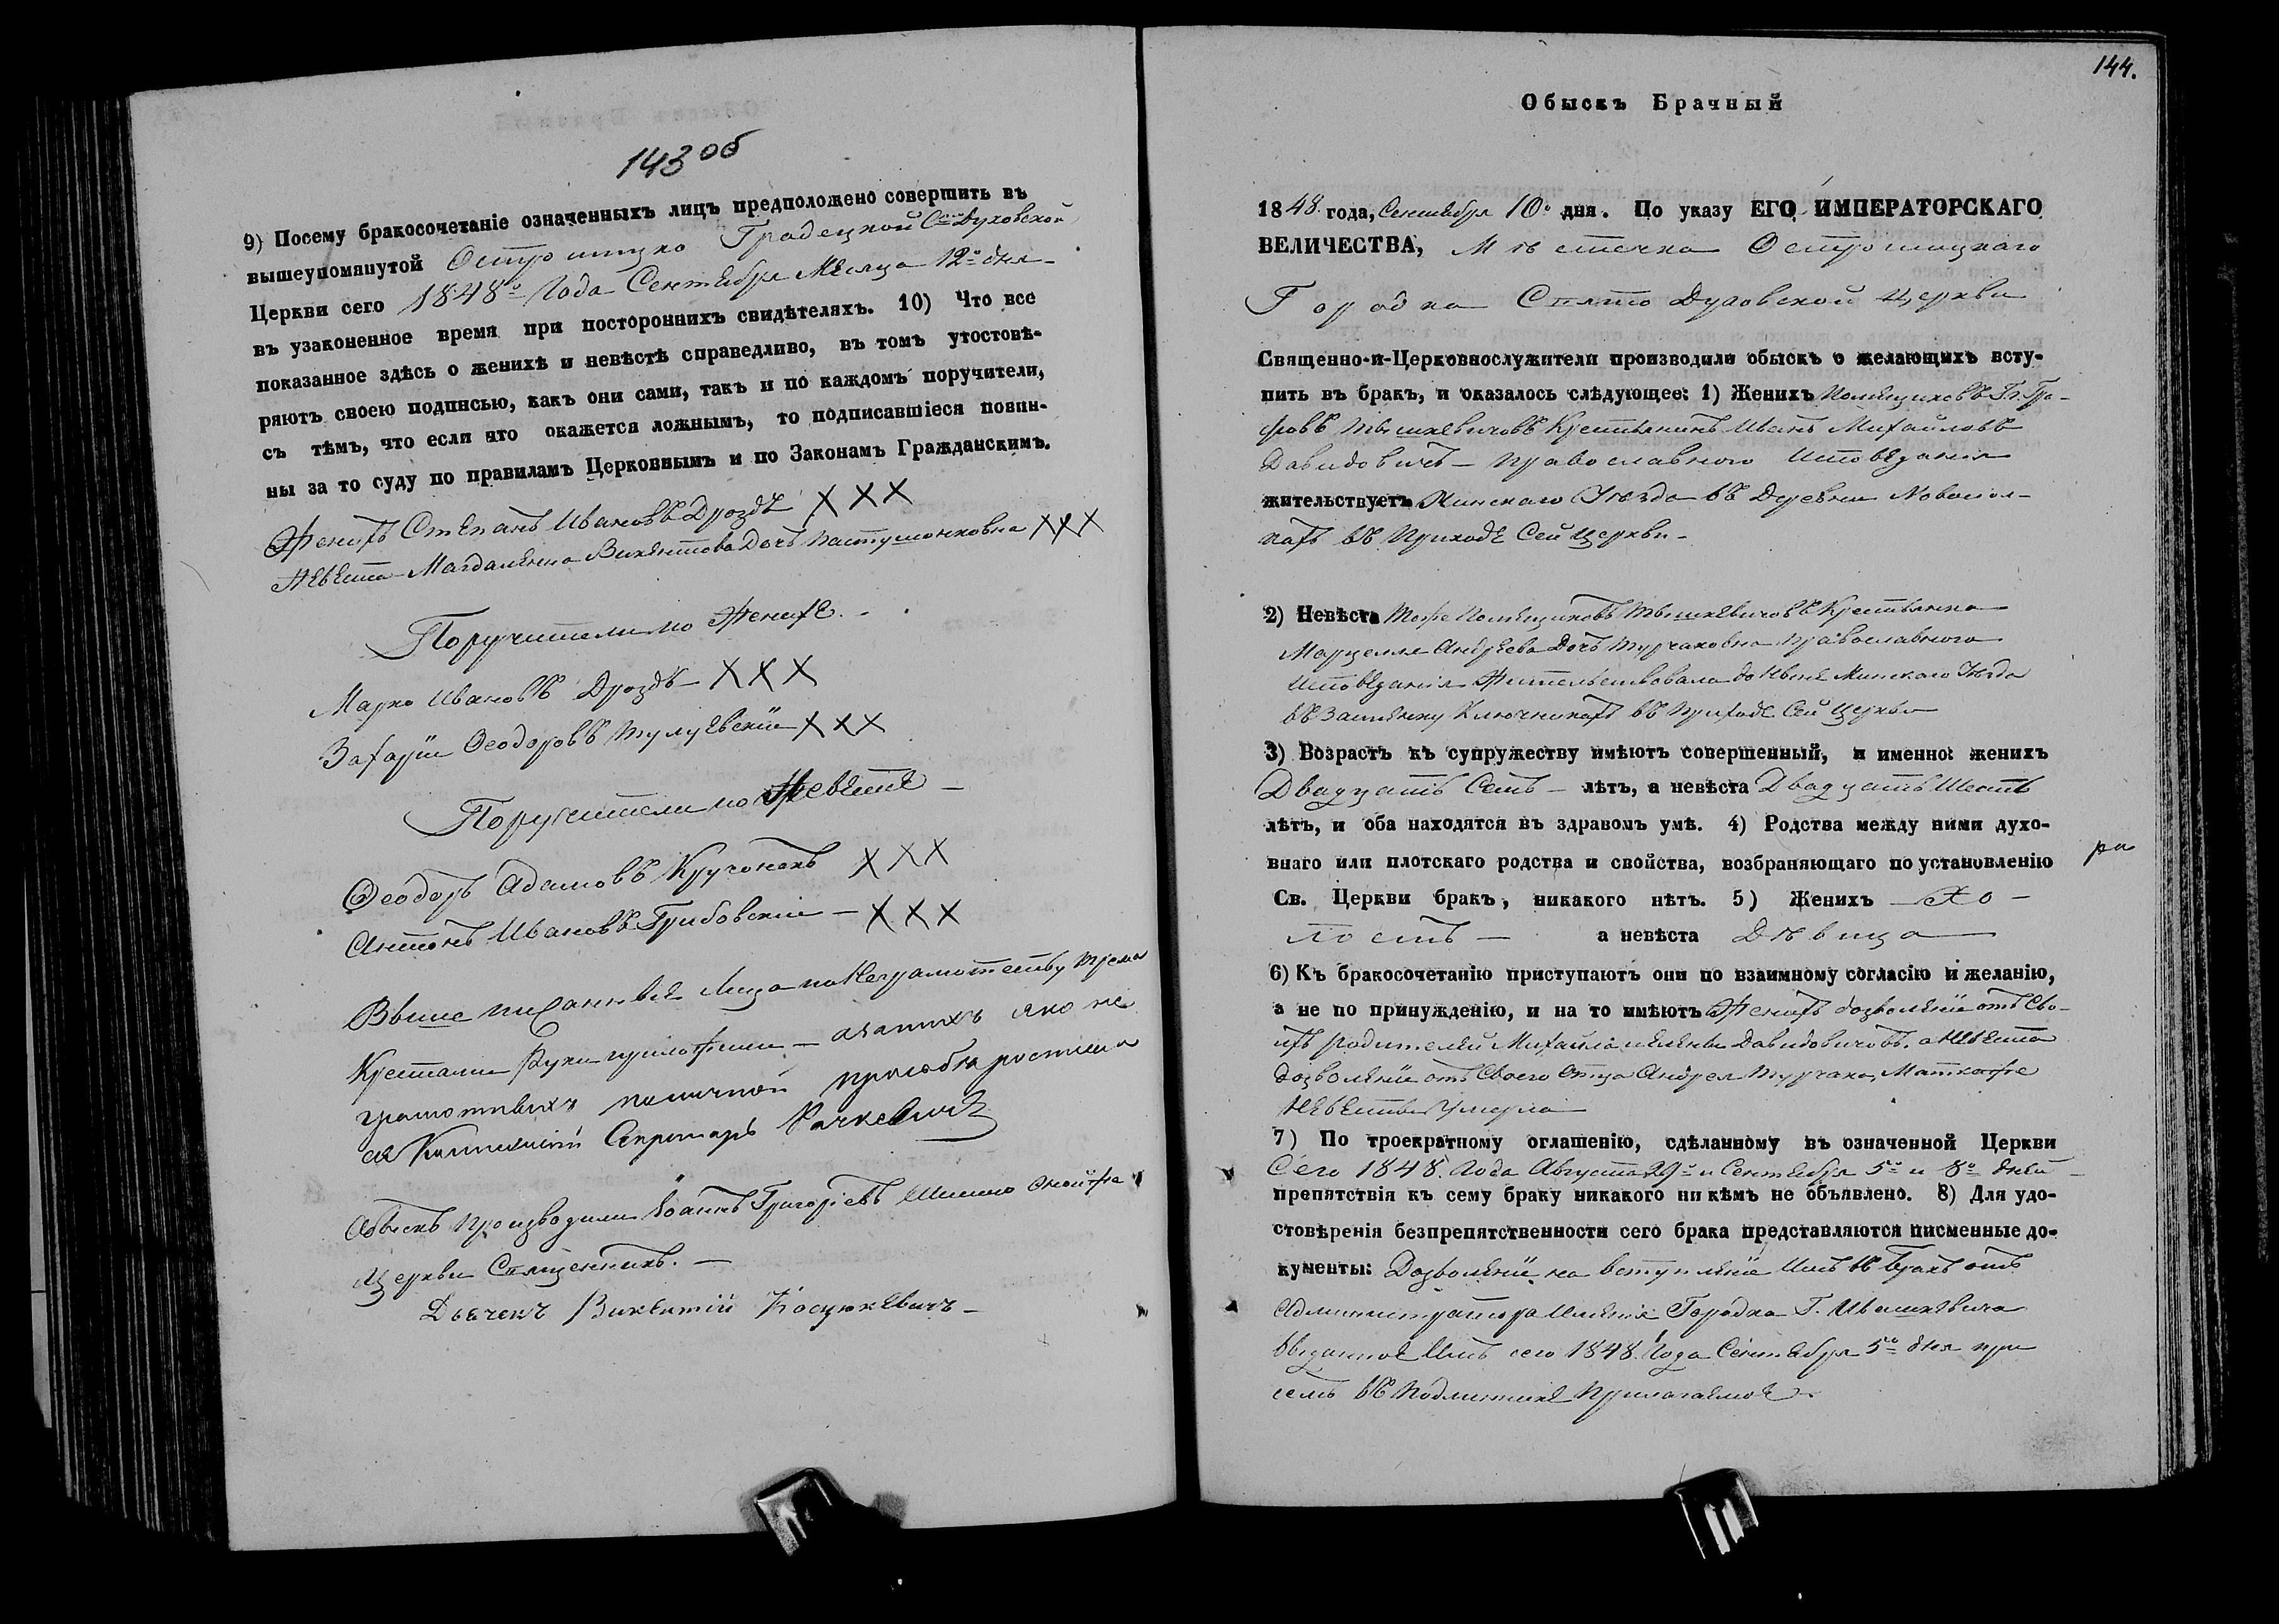 143 об
9) Посему бракосочетаніе означенныхъ лицъ предположено совершить въ
вышеупомянутой Острошицко Градецкой Свято Духовской
Церкви сего 1848го Года Сентября Месяца 12го дня
въ узаконенное время при постороннихъ свидѣтеляхъ. 10) Что все
показанное здѣсь о женихѣ и невѣстѣ справедливо, въ томъ утостовѣ-
ряютъ своею подписью, какъ они сами, такъ и по каждомъ поручители,
съ тѣмъ, что если что окажется ложнымъ, то подписавшіеся повин-
ны за то суду по правиламъ Церковнымъ и по Законамъ Гражданскимъ.
Женихъ Степанъ Ивановъ Дроздъ Х Х Х
Невеста Магдалена Викентова Дочь Пастушонковна Х Х Х
Поручители по Женихе.
Марко Ивановъ Дроздъ Х Х Х
Захарій Феодоровъ Х Х Х
Поручители по Невесте
Феодоръ Адамовъ Кручонокъ Х Х Х
Антонъ Ивановъ Грибовскій Х Х Х
Выше писанные Лица по Неграмотству Трема
Крестами Руки приложили а за нихъ яко не
грамотныхъ по личной прозьбе росписал
ся Секретарь Рачкевичъ
Обыскъ Производили Іоаннъ Григорієвъ Оной же
Церкви Священникъ.
Дьячекъ Викентій Косцюкевичъ
144.
Обыскъ Брачный
1848 года, Сентября 10го дня. По указу ЕГО ИМПЕРАТОРСКАГО
ВЕЛИЧЕСТВА, Мѣстечка Острошицкаго
Городка Свято Духовской Церкви
Священно-и-Церковнослужители производили обыскъ о желающихъ всту-
пить въ бракъ, и оказалось слѣдующее: 1) Женихъ Помещиковъ Гг. Гра-
фовъ Тышкевичовъ Крестьянинъ Иванъ Михайловъ
Давидовичъ Православного Исповеданія
жительствуетъ Минскаго Уезда въ Деревни Новосел-
кахъ въ Приходе Сей Церкви
2) Невѣста Тоже Помещиковъ Тышкевичовъ Крестьянка
Марцелля Андреева Дочь Турчаковна Православного
Исповеданія Жительствовала до Ныне Минскаго Уезда
въ Застенку Ключникахъ въ Приходе Сей Церкви
3) Возрастъ къ супружеству имѣютъ совершенный, и именно: женихъ
Двадцать Семь лѣтъ, а невѣста Двадцать Шесть
лѣтъ, и оба находятся въ здравомъ умѣ. 4) Родства между ними духо-
внаго или плотскаго родства и свойства, возбраняющаго по установленію
Св. Церкви бракъ, никакого нѣтъ. 5) Женихъ Хо-
лостъ а невѣста Дѣвица
6) Къ бракосочетанію приступаютъ они по взаимному согласію и желанію,
а не по принужденію, и на то имѣютъ Женихъ дозволеніе отъ Сво-
ихъ родителей Михайла и Елены Давидовичовъ, а Невеста
дозволеніе отъ Своего Отца Андрея Турчака, Матка же
Невесты Умерла
7) По троекратному оглашенію, сдѣланному въ означенной Церкви
Сего 1848. Года Августа 29го и Сентября 5го и 8го дней
препятствія къ сему браку никакого ни кѣмъ не объявлено. 8) Для удо-
стовѣренія безпрепятственности сего брака представляются писменные до-
кументы: Дозволеніе на вступленіе Имъ въ бракъ отъ
Администратора Именія Городка Г. Ивашкевича
выданное Имъ сего 1848. Года Сентября 5го дня при
семъ въ Подлиннике Прилагаемое